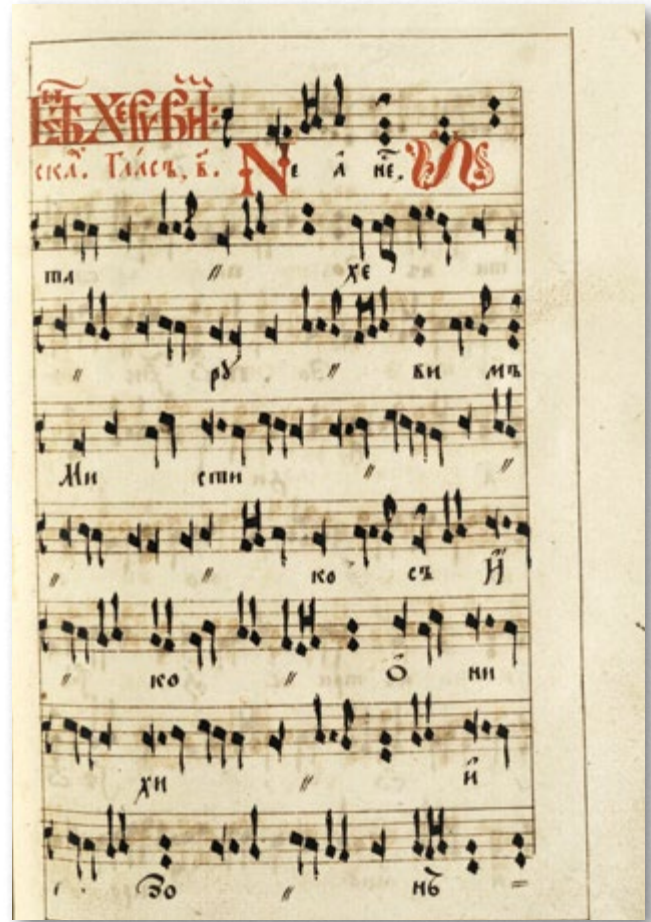 Херуви:
Гласъ, в҃. Не а не, И
та // хе
// рꙋ // ви мъ
Ми сти // //
// // ко съ И
// ко // О ни
хи // и
// Зо // нь =